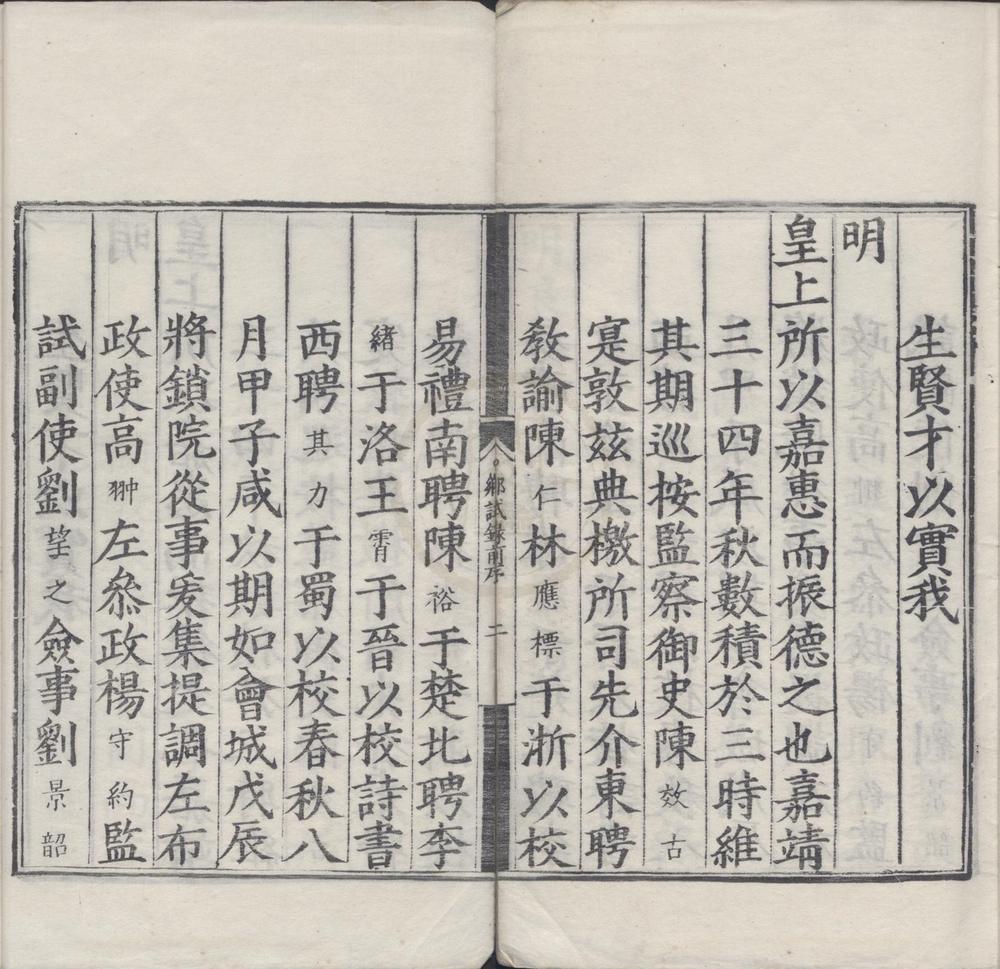 生賢才以實我
明
皇上所以嘉惠而振德之也嘉靖
三十四年秋數積於三時維
其期巡按監察御史陳效古
寔敦茲典檄所司先介東聘
教諭陳仁林應標于浙以校
鄉試錄前序 二
易禮南聘陳裕于楚北聘李
緒于洛王霄于晉以校詩書
西聘其力于蜀以校春秋八
月甲子咸以期如會城戊辰
將鎖院從事爰集提調左布
政使高翀左叅政楊守約監
試副使劉望之僉事劉景韶